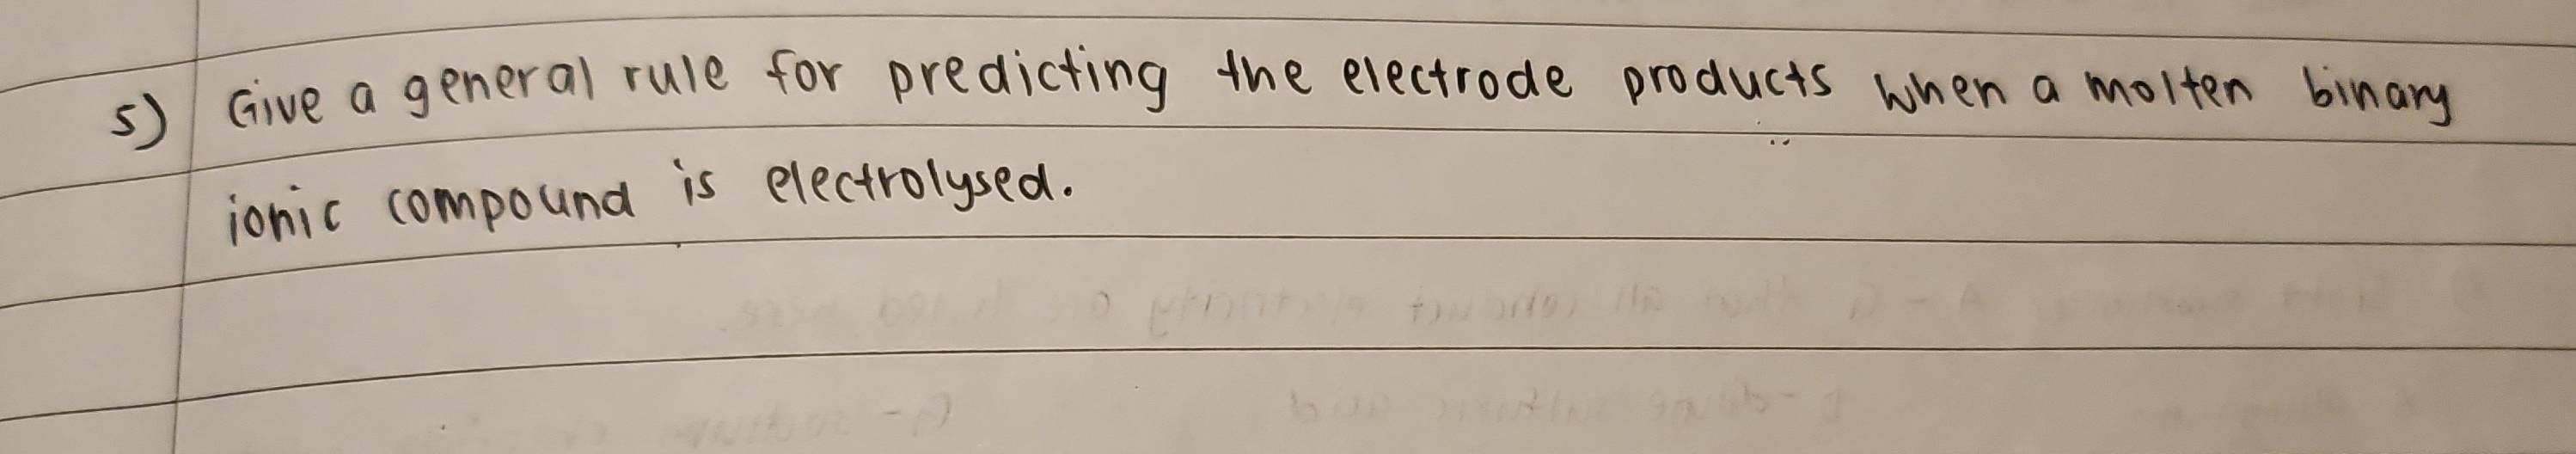 5) Give a general rule for predicting the electrode products when a molten binary
ionic compound is electrolysed.